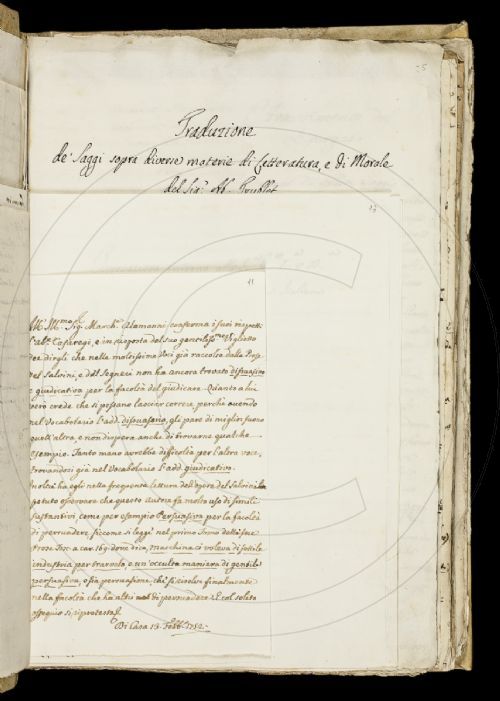 25
Traduzione
de' Saggi sopra diverse materie di Letteratura, e di Morale
del Sigr. Ab. Trublet
13
11
Sigr. Marche. Alamanni conferma i suoi rispetti
Casaregi, e in risposta del suo Viglietto
dirgli che nelle moltissime Voci già raccolte dalle Prose
del Salvini, e del Segneri non ha ancora trovato dissuasivo
e giudicativa per la facoltà del giudicare. Quanto a lui
crede che si possano lasciar correre, perchè avendo
nel Vocabolario l'add. dissuasorio, gli pare di miglior suono
quell'altra, e non dispera anche di trovarne qualche
esempio. Tanto meno avrebbe difficoltà per l'altra voce,
trovandosi già nel Vocabolario l'add. giudicativo.
ha egli nella frequente lettura dell'opere del Salvini
potuto osservare che questo Autore fa molto uso di simili
sustantivi, come per esempio Persuasiva per la facoltà
di persuadere siccome si legge nel primo Tomo delle sue
Prose Tosc. a car. 169. dove dice, macchina ci voleva di sottile
industria per trarvelo, e un'occulta maniera di gentile
persuasiva, o sia persuasione, che si risolve finalmente
nella facoltà che ha altri di persuadere. E col solito
ossequio si riprotesta
Di Casa 13. Febb. 1752.